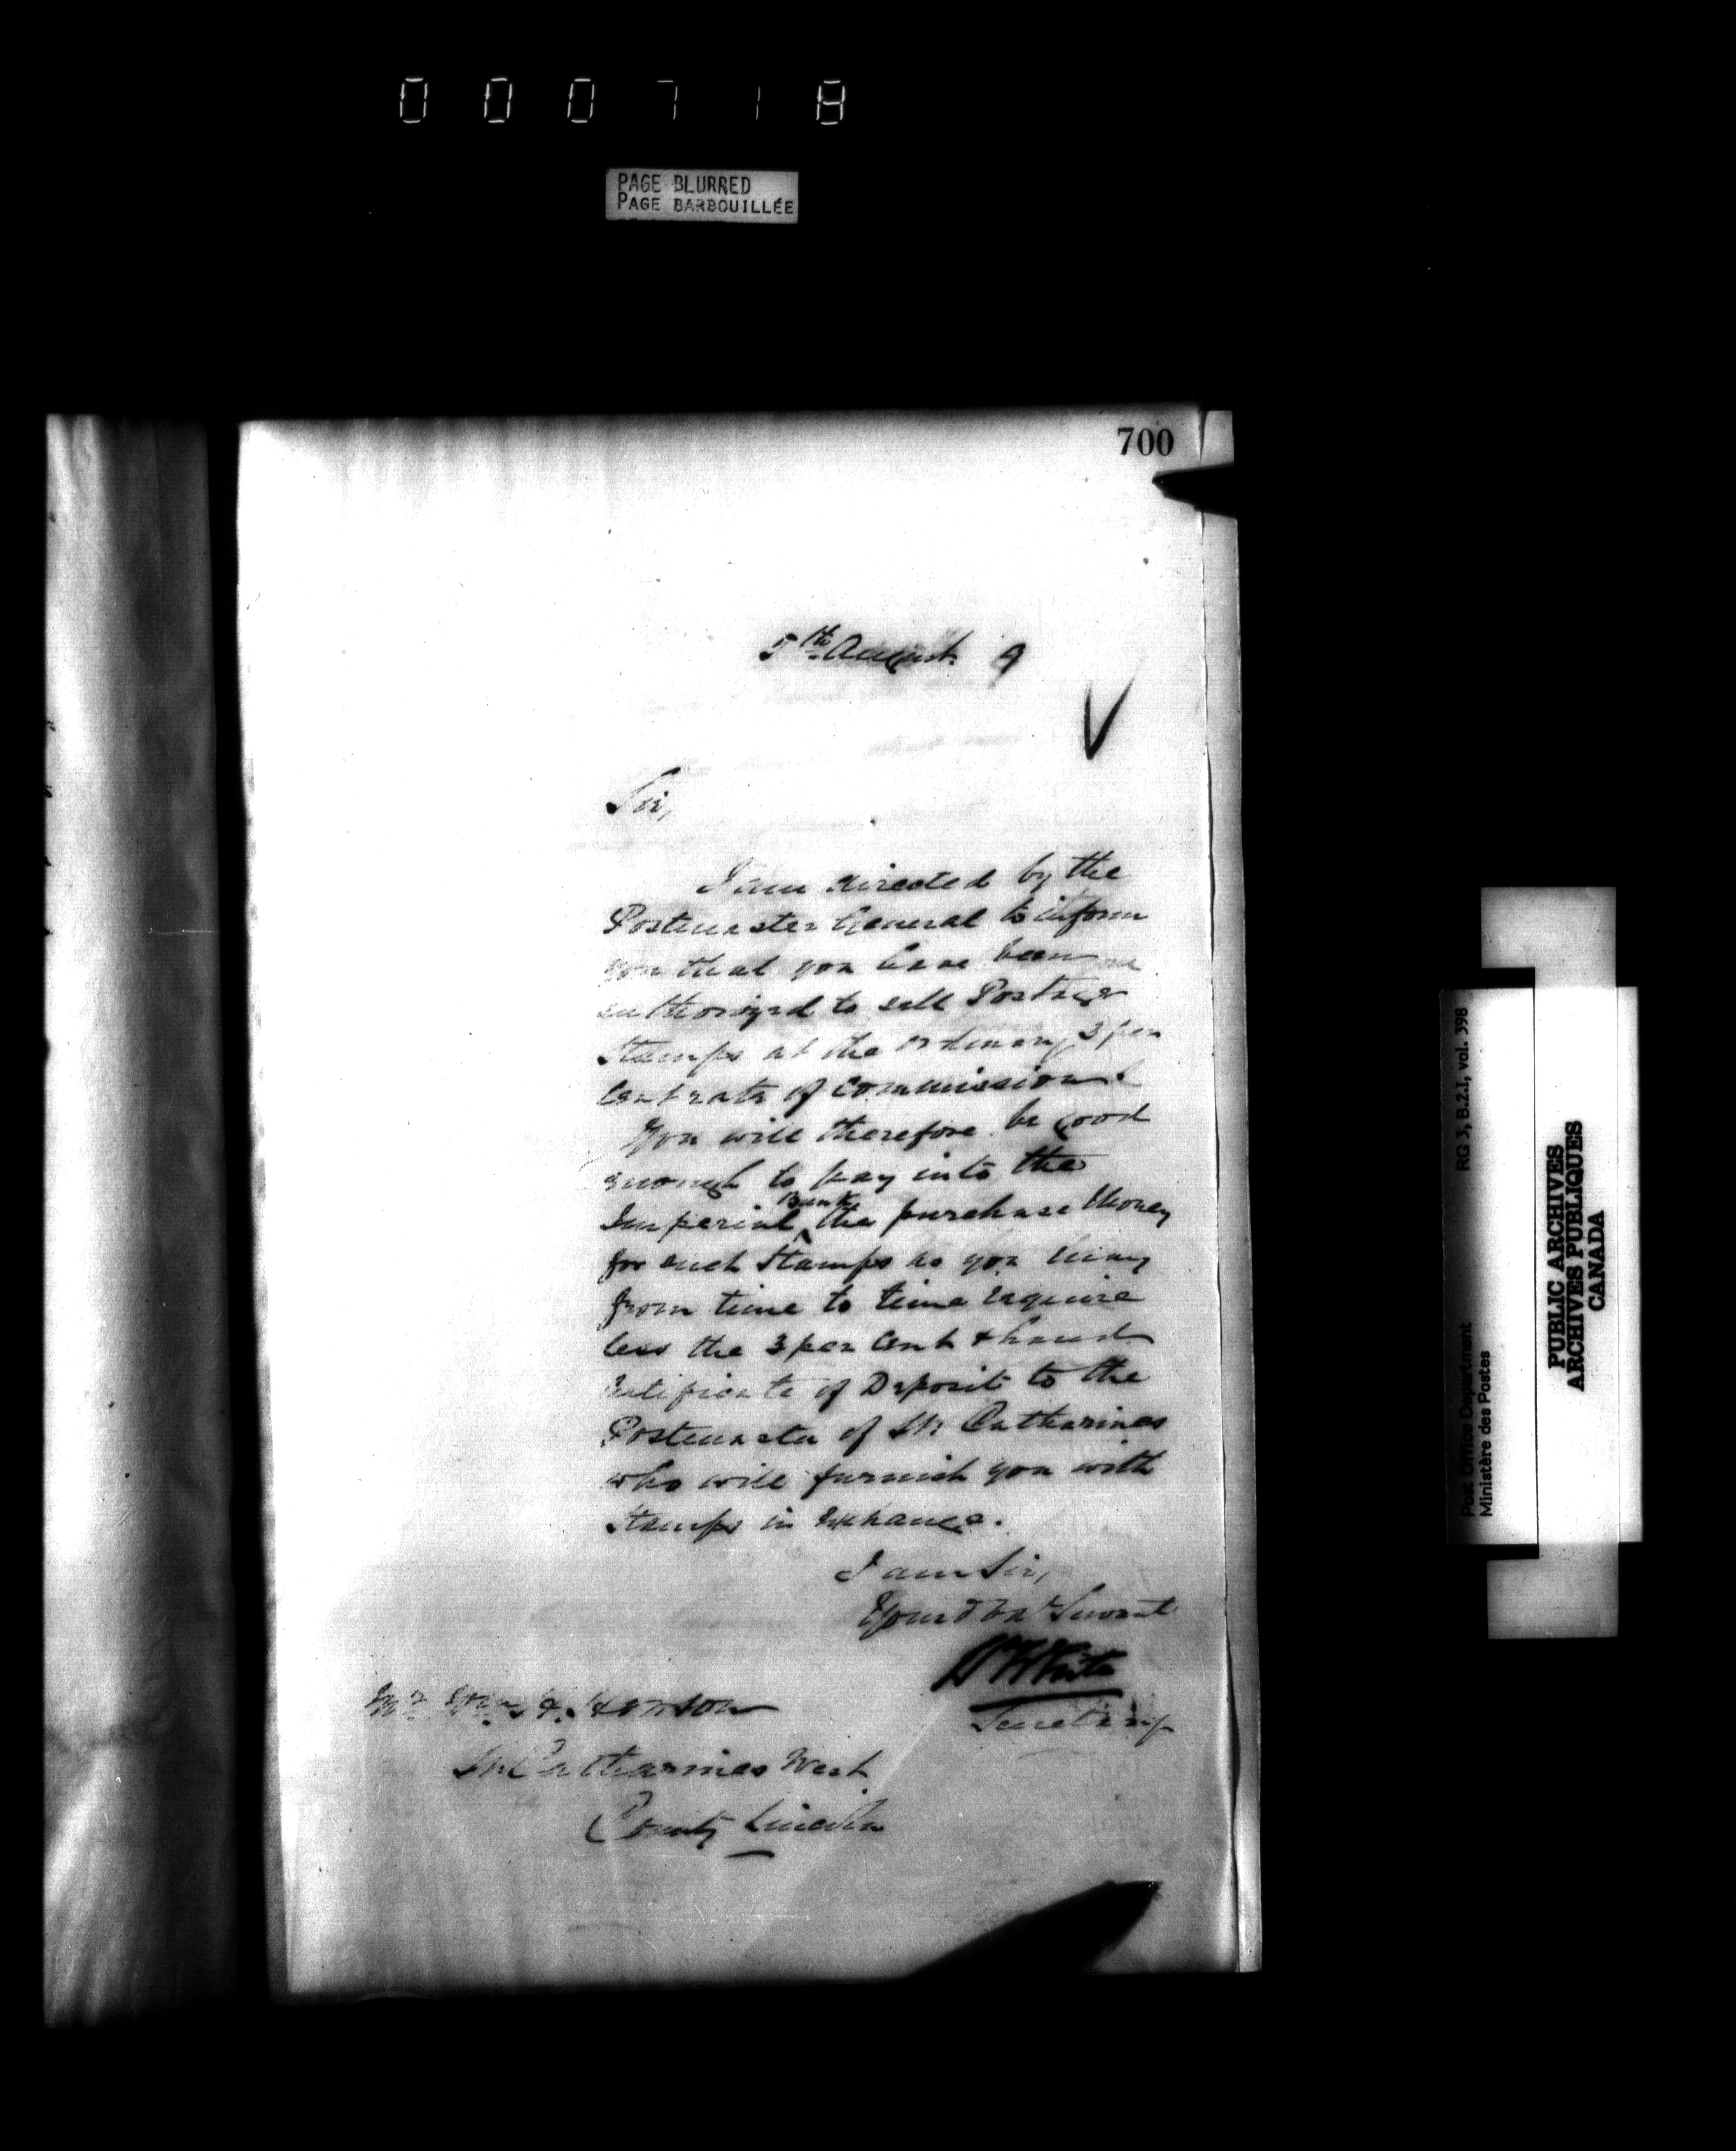 000718
PAGE BLURRED
PAGE BARBOUILLÉE
700
5th August 9
Sir,
I am directed by the
Postmaster General to inform
you that you have been
authorized to sell Postage
Stamps at the ordinary 3 per
Cent rate of Commission.
You will therefore be good
enough to pay into the
Imperial Bank the purchase Money
for such Stamps as you may
from time to time require
less the 3 per Cent & hand
Certificate of Deposit to the
Postmaster of St Catharines
who will furnish you with
Stamps in Exchange.
I am Sir,
Your Obt Servant
Wm White
Secretary
Mr Wm
St Catharines West
County Lincoln
Post Office Department RG 3, B.2.1, vol. 398
Ministère des Postes
PUBLIC ARCHIVES
ARCHIVES PUBLIQUES
CANADA